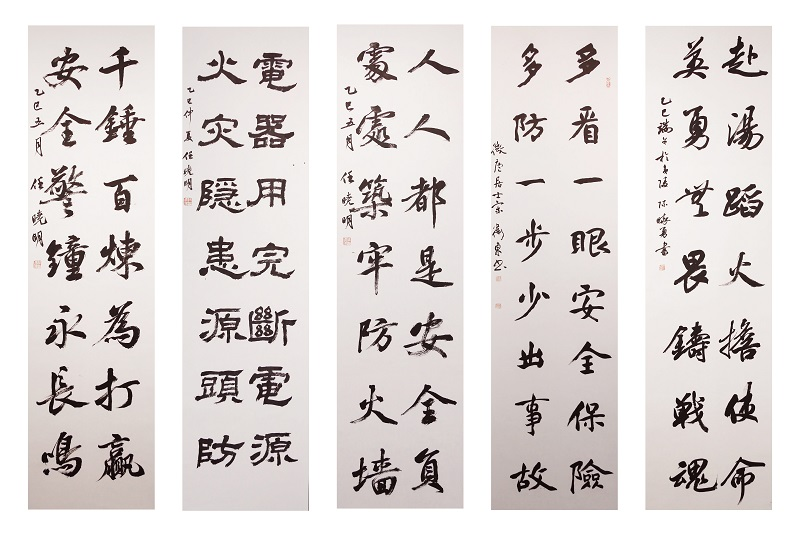 赴湯蹈火擔使命
英勇無畏鑄戰魂
乙巳端午於
多看一眼安全保險
多防一步少出事故
人人都是安全員
處處築牢防火墙
乙巳五月 任曉明
電器用完斷電源
火灾隱患源頭防
乙巳仲夏 任曉明
千錘百煉為打贏
安全警鐘永長鳴
乙巳五月 任曉明